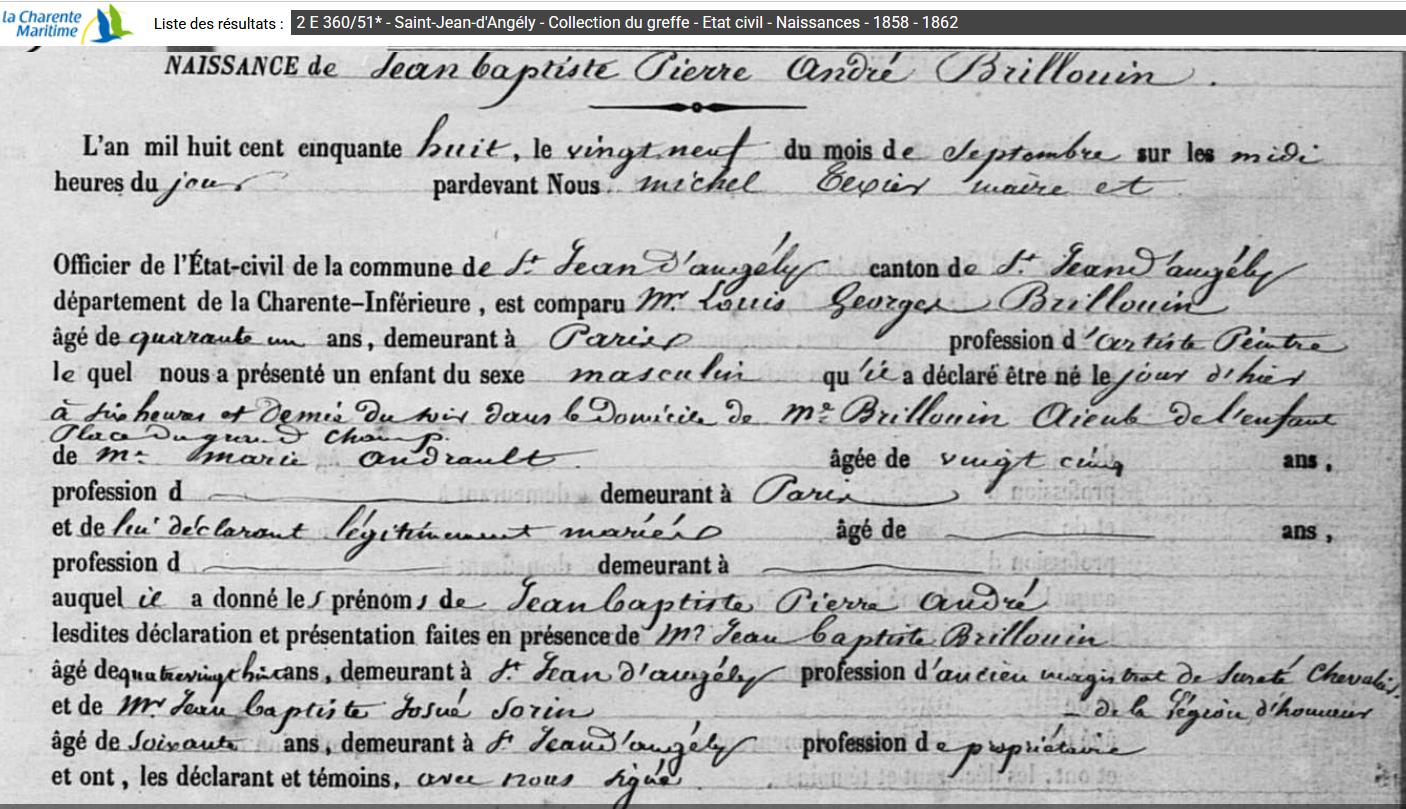 la Charente
Maritime
Liste des résultats : 2 E 360/51* - Saint-Jean-d'Angély - Collection du greffe - Etat civil - Naissances - 1858 - 1862
NAISSANCE de Jean baptiste Pierre André Brillouin.
L'an mil huit cent cinquante huit, le vingt neuf du mois de Septembre sur les midi
heures du jour pardevant Nous michel Texier maire et
Officier de l'État-civil de la commune de St Jean d'angély canton de St Jean d'angély
département de la Charente-Inférieure, est comparu Mr Louis Georges Brillouin
âgé de quarante un ans, demeurant à Paris profession d'artiste Peintre
le quel nous a présenté un enfant du sexe masculin qu'il a déclaré être né le jour d'hier
à six heures et Demie Du soir dans le Domicile de Mr Brillouin Aieule de l'enfant
Place Du grand Champ.
de Me marie andrault. âgée de vingt cinq ans,
profession d demeurant à Paris
et de lui déclarant légitimement mariés âgé de ans,
profession d demeurant à
auquel il a donné les prénoms de Jean baptiste Pierre andré
lesdites déclaration et présentation faites en présence de Mr Jean baptiste Brillouin
âgé de quatrevingt huit ans, demeurant à St Jean d'angély profession d'ancien magistrat de Sureté Chevalier
et de Mr Jean baptiste Josué Sorin de la Légion d'honneur
âgé de Soixante ans, demeurant à St Jean d'angély profession de propriétaire
et ont, les déclarant et témoins, avec nous signé.